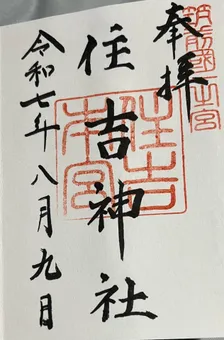 筑前國一之宮
奉拝
住吉神社
住吉本宮
令和七年八月九日